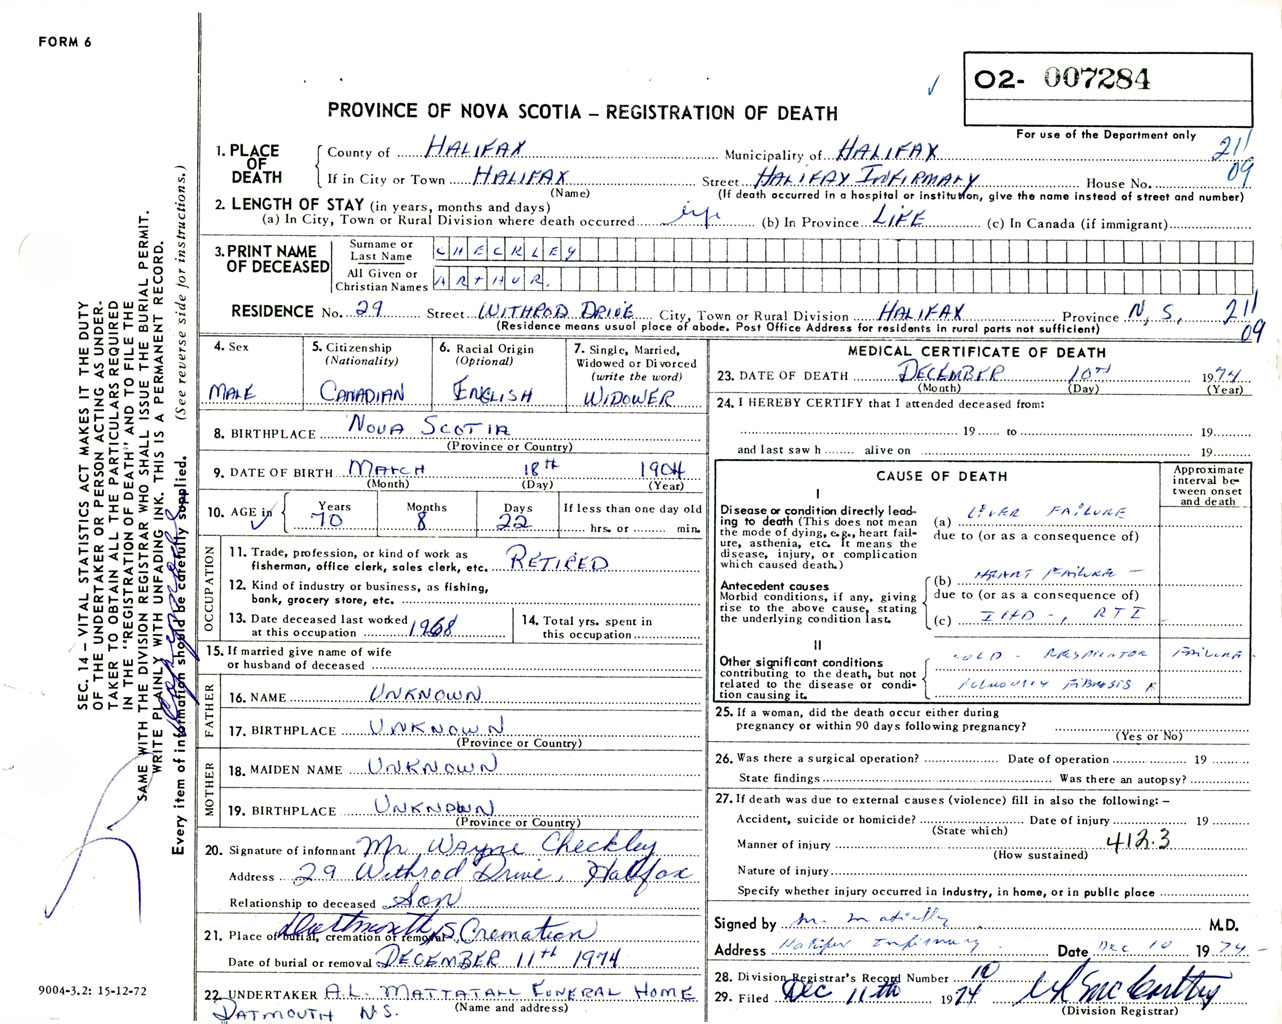 FORM 6
O2- 007284
PROVINCE OF NOVA SCOTIA – REGISTRATION OF DEATH
For use of the Department only
1. PLACE OF DEATH
County of HALIFAX Municipality of HALIFAX 211
If in City or Town HALIFAX Street HALIFAX INFIRMARY House No. 09
(Name) (If death occurred in a hospital or institution, give the name instead of street and number)
2. LENGTH OF STAY (in years, months and days)
(a) In City, Town or Rural Division where death occurred Life (b) In Province LIFE (c) In Canada (if immigrant)
3. PRINT NAME OF DECEASED
Surname or Last Name CHECKLEY
All Given or Christian Names ARTHUR.
RESIDENCE No. 29 Street WITHROD DRIVE City, Town or Rural Division HALIFAX Province N.S. 211
(Residence means usual place of abode. Post Office Address for residents in rural parts not sufficient) 09
4. Sex
MALE
5. Citizenship
(Nationality)
CANADIAN
6. Racial Origin
(Optional)
ENGLISH
7. Single, Married,
Widowed or Divorced
(write the word)
WIDOWER
8. BIRTHPLACE NOVA SCOTIA
(Province or Country)
9. DATE OF BIRTH MARCH 18TH 1904
(Month) (Day) (Year)
10. AGE in
Years Months Days If less than one day old
70 8 22 hrs. or min.
OCCUPATION
11. Trade, profession, or kind of work as
fisherman, office clerk, sales clerk, etc. RETIRED
12. Kind of industry or business, as fishing,
bank, grocery store, etc.
13. Date deceased last worked
at this occupation 1968
14. Total yrs. spent in
this occupation
15. If married give name of wife
or husband of deceased
FATHER
16. NAME UNKNOWN
17. BIRTHPLACE UNKNOWN
(Province or Country)
MOTHER
18. MAIDEN NAME UNKNOWN
19. BIRTHPLACE UNKNOWN
(Province or Country)
20. Signature of informant Mr Wayne Checkley
Address 29 Withrod Drive, Halifax
Relationship to deceased Son
21. Place of burial, cremation or removal Dartmouth, NS Cremation
Date of burial or removal DECEMBER 11TH 1974
22. UNDERTAKER A.L. MATTATALL FUNERAL HOME
(Name and address)
DATMOUTH N.S.
MEDICAL CERTIFICATE OF DEATH
23. DATE OF DEATH DECEMBER 10TH 1974
(Month) (Day) (Year)
24. I HEREBY CERTIFY that I attended deceased from:
19 to 19
and last saw h alive on 19
CAUSE OF DEATH
Approximate
interval be-
tween onset
and death
I
Disease or condition directly lead-
ing to death (This does not mean
the mode of dying, e.g., heart fail-
ure, asthenia, etc. It means the
disease, injury, or complication
which caused death.)
(a) LIVER FAILURE
due to (or as a consequence of)
Antecedent causes
Morbid conditions, if any, giving
rise to the above cause, stating
the underlying condition last.
(b) HEART FAILURE –
due to (or as a consequence of)
(c) IHD –, RTI
II
Other significant conditions
contributing to the death, but not
related to the disease or condi-
tion causing it.
COLD – RESPIRATOR FAILURE
PULMONARY FIBROSIS
25. If a woman, did the death occur either during
pregnancy or within 90 days following pregnancy?
(Yes or No)
26. Was there a surgical operation? Date of operation 19
State findings Was there an autopsy?
27. If death was due to external causes (violence) fill in also the following: –
Accident, suicide or homicide? Date of injury 19
(State which)
Manner of injury 412.3
(How sustained)
Nature of injury
Specify whether injury occurred in industry, in home, or in public place
Signed by M. M.D.
Address Halifax Infirmary Date Dec 10 1974
28. Division Registrar's Record Number 10
29. Filed Dec 11th 1974
(Division Registrar)
SEC. 14 – VITAL STATISTICS ACT MAKES IT THE DUTY
OF THE UNDERTAKER OR PERSON ACTING AS UNDER-
TAKER TO OBTAIN ALL THE PARTICULARS REQUIRED
IN THE "REGISTRATION OF DEATH" AND TO FILE THE
SAME WITH THE DIVISION REGISTRAR WHO SHALL ISSUE THE BURIAL PERMIT.
WRITE PLAINLY WITH UNFADING INK. THIS IS A PERMANENT RECORD.
Every item of information should be carefully supplied. (See reverse side for instructions.)
9004-3.2: 15-12-72